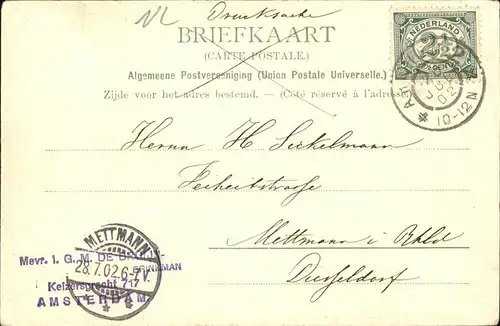 NL
Drucksache
BRIEFKAART
(CARTE POSTALE.)
Algemeene Postvereeniging (Union Postale Universelle.)
Zijde voor het adres bestemd. — (Côté réservé à l'adresse.)
NEDERLAND
2½
CENT
10-12 N
Herrn H Sirkelmann
Freiheitstrasse
Mettmann i Rhld
Dusseldorf
METTMANN
28.7.02.6-7V.
Mevr. I. G. M. DE
BRINKMAN
Keizersgracht 717
AMSTERDAM.